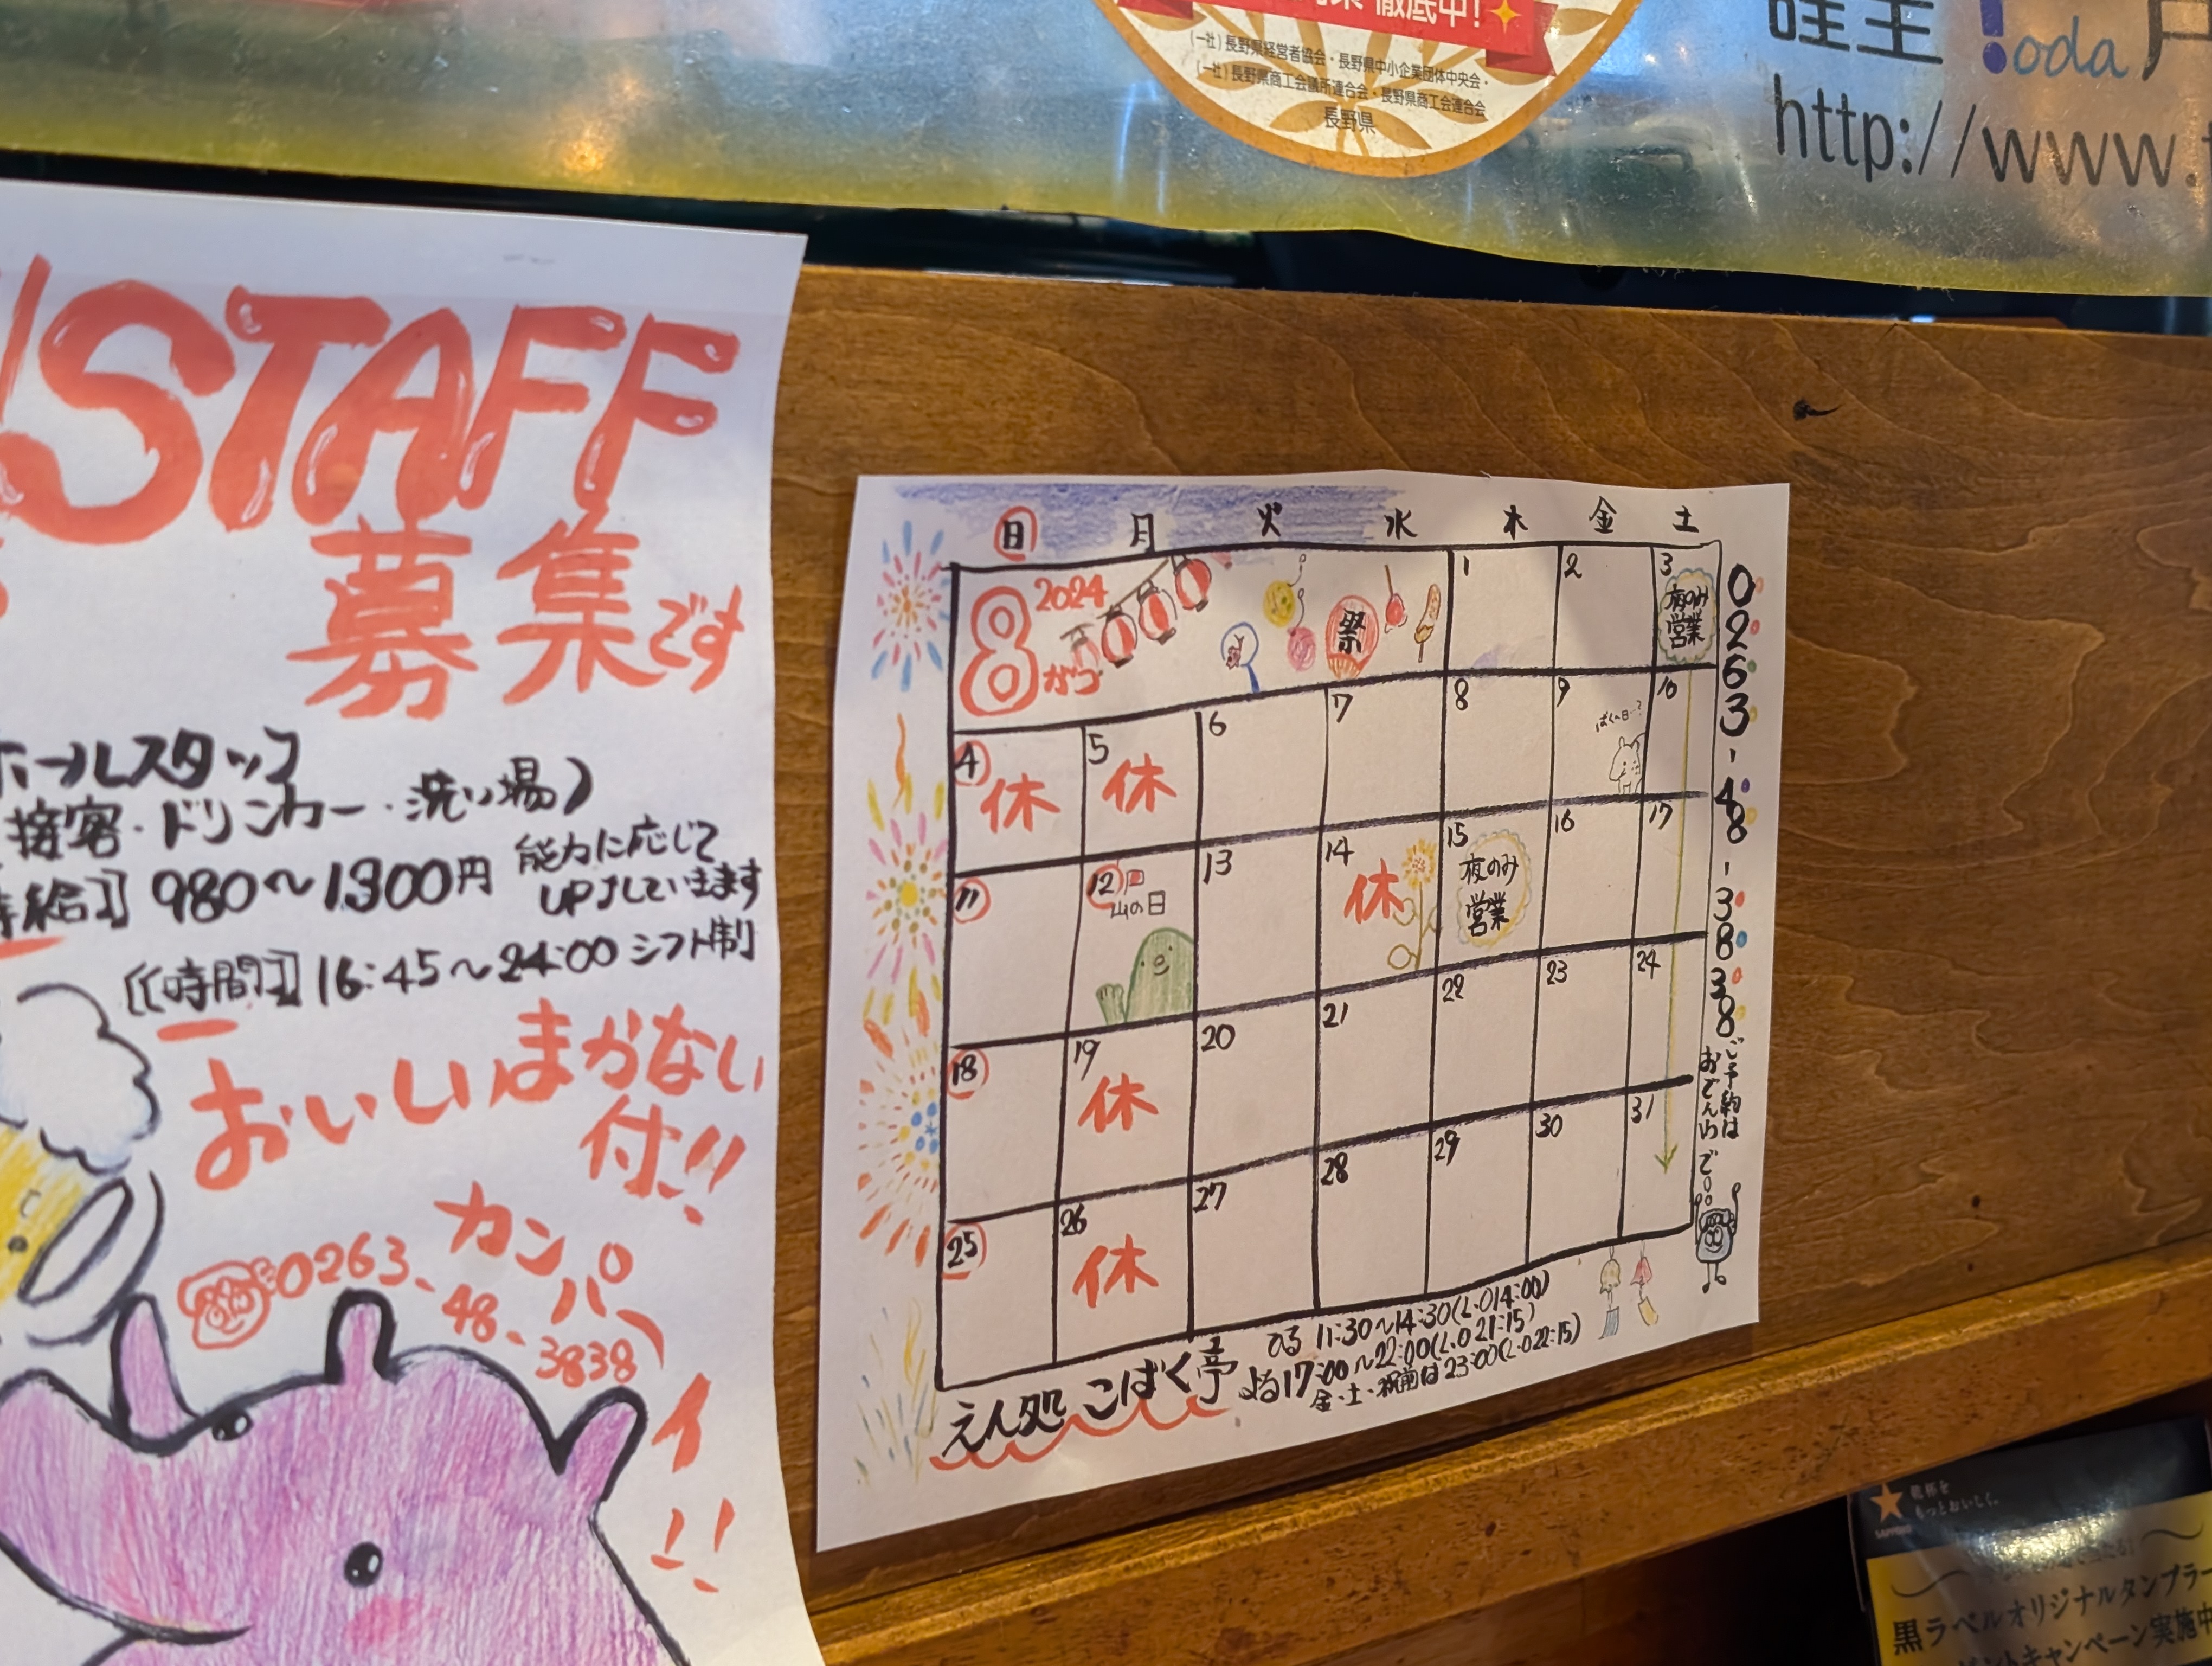 徹底中!
(一社)長野県経営者協会・長野県中小企業団体中央会・
(一社)長野県商工会議所連合会・長野県商工会連合会
長野県
!oda
http://www.
STAFF
募集です
ホールスタッフ
接客・ドリンカー・洗い場)
980〜1300円
能力に応じて
UPしています
[時間] 16:45〜24:00 シフト制
おいしいまかない
付!!
カンパーイ!!
0263-48-3838
日 月 火 水 木 金 土
8がつ 2024
祭
1 2 3 夜のみ営業
4 休 5 休 6 7 8 9 ばくの日…? 10
11 12 山の日 13 14 休 15 夜のみ営業 16 17
18 19 休 20 21 22 23 24
25 26 休 27 28 29 30 31
0263-48-3838
ご予約は
おでんわで
えん処 こばく亭
ひる 11:30〜14:30(L.O14:00)
よる17:00〜22:00(L.O21:15)
金・土・祝前は23:00(L.O22:15)
乾杯を
もっとおいしく。
SAPPORO
黒ラベルオリジナルタンブラー
キャンペーン実施中